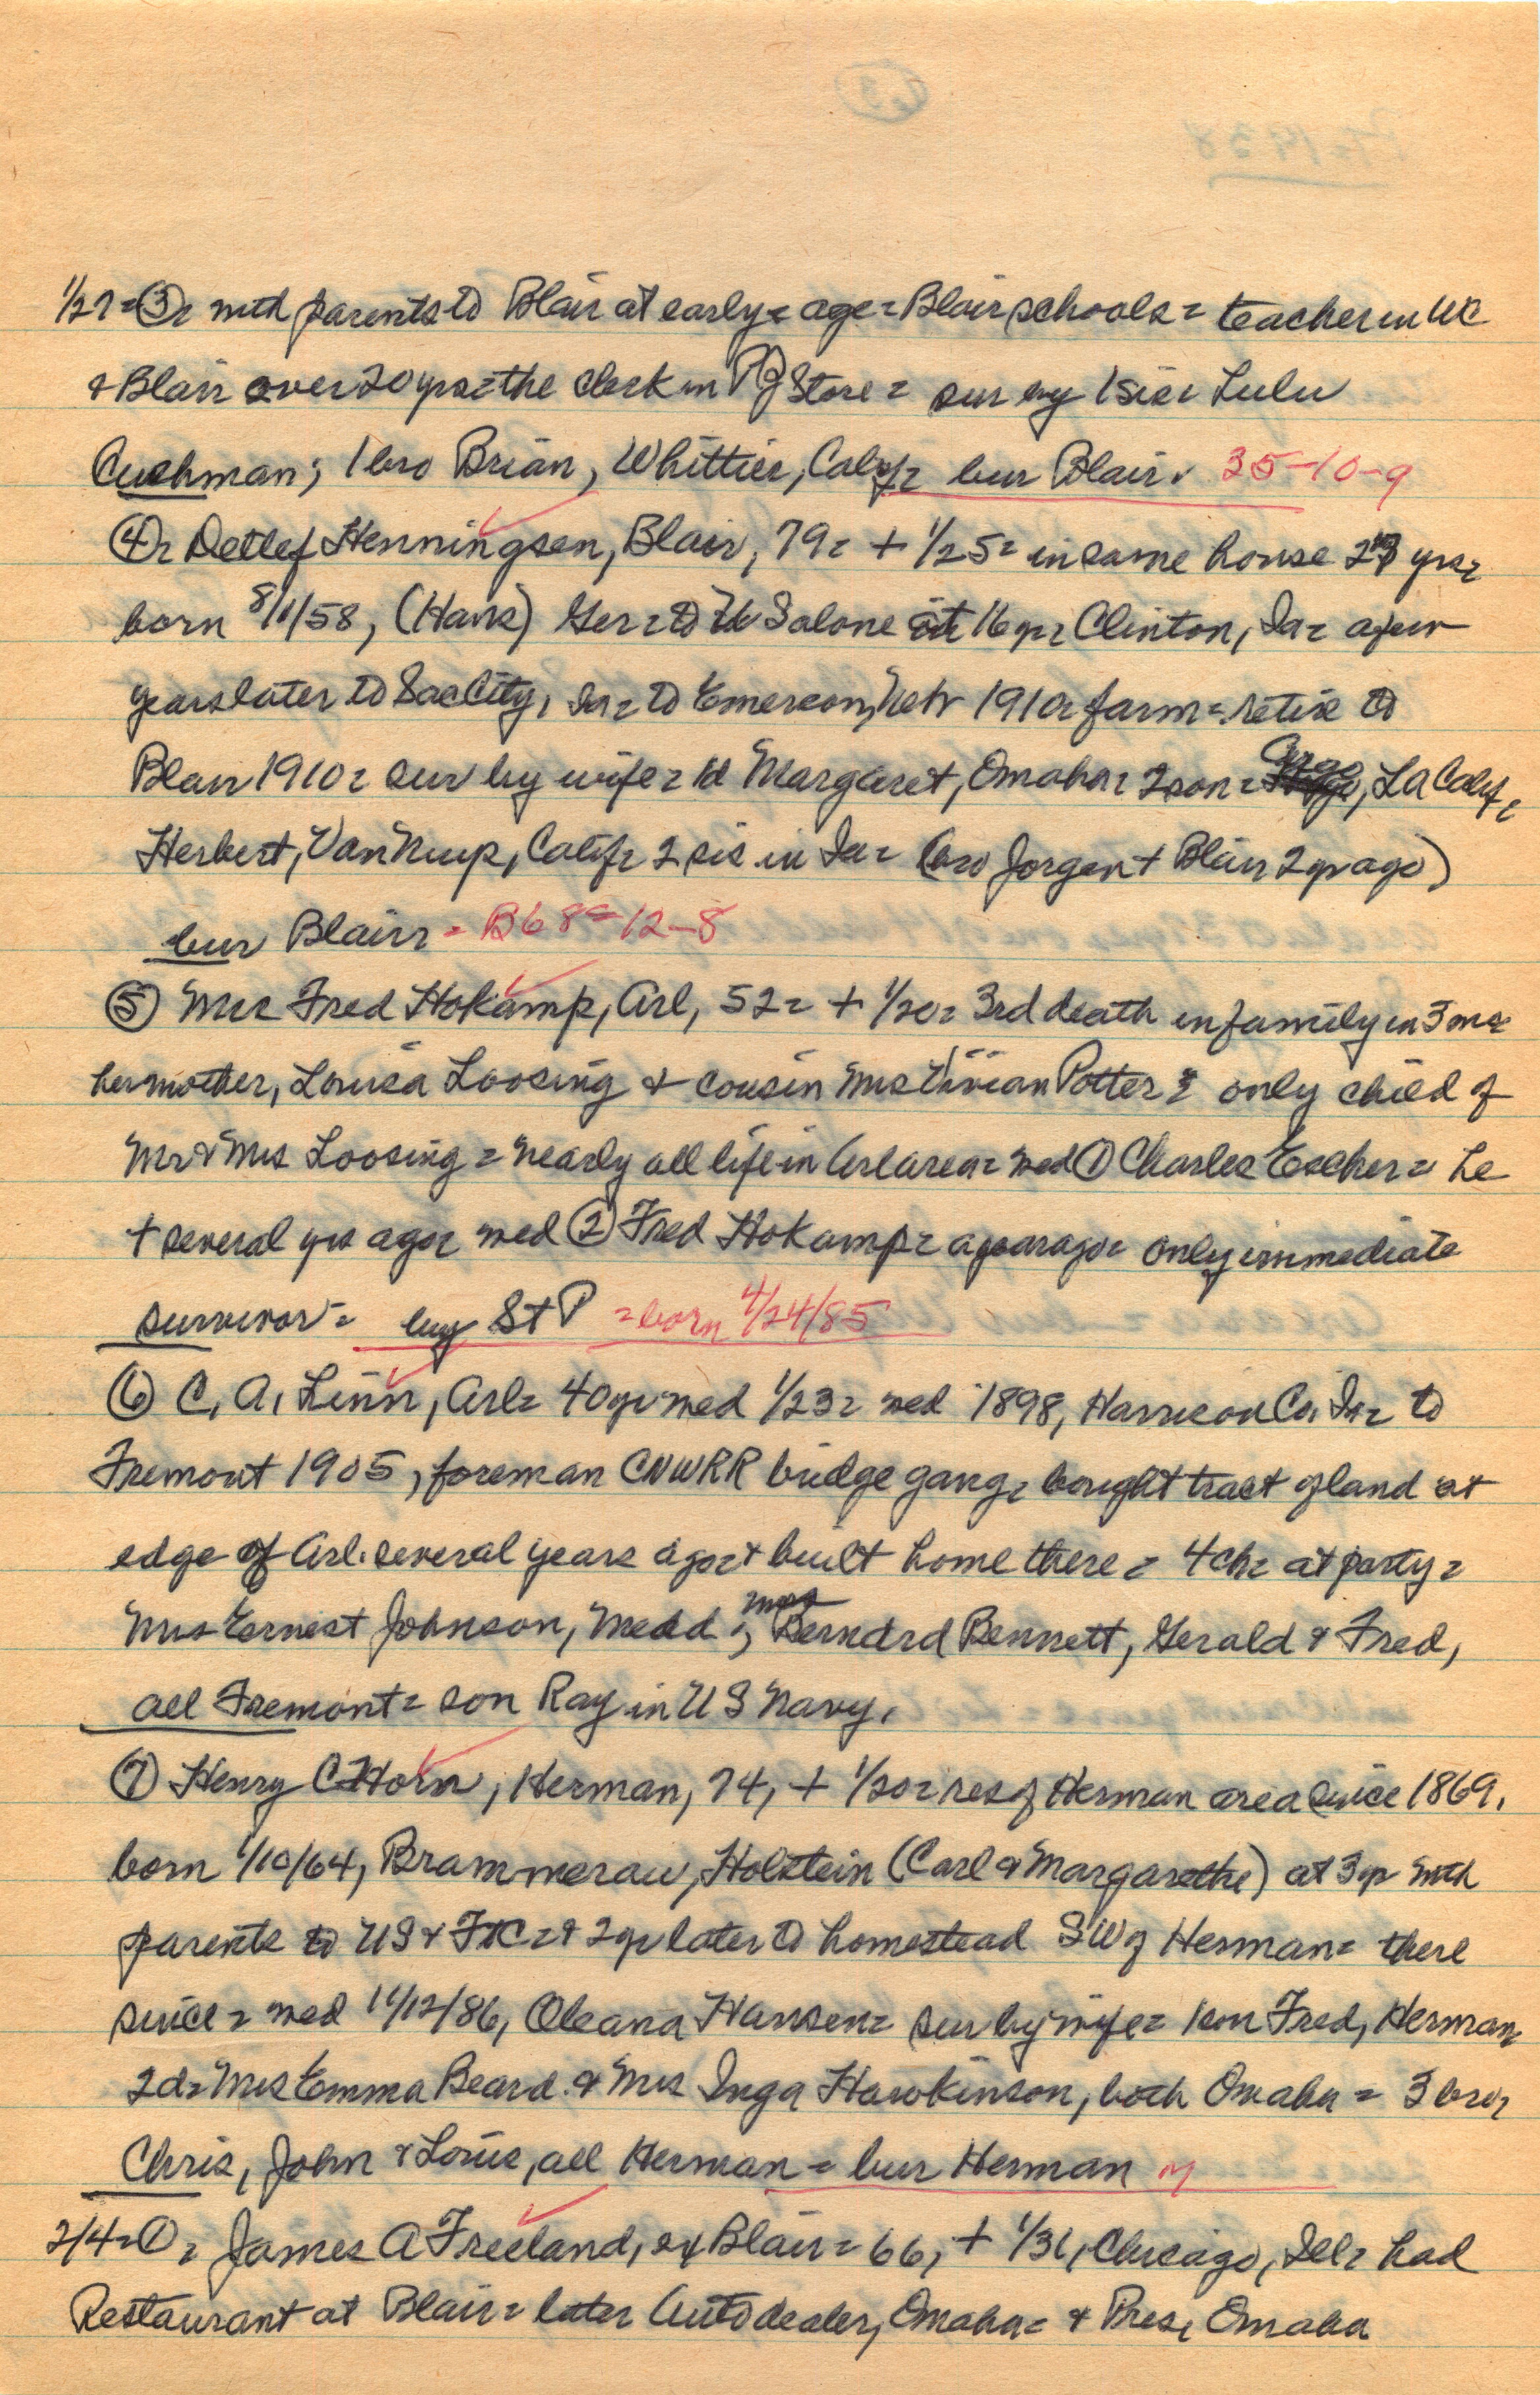 1/27=③= with parents to Blair at early= age= Blair schools= teacher in WC
& Blair over 20 yrs= the clerk in Store= sur by 1 sis= Lulu
Cushman; 1 bro Brian, Whittier, Calif= bur Blair. 35-10-9
④= Detlef Henningsen, Blair, 79= + 1/25= in same house 27 yrs=
born 8/1/58, (Hans) Ger= to US alone at 16 yr= Clinton, Ia= a few
years later to Sac City, Ia= to Emerson, Neb 1910= farm= retire to
Blair 1910= sur by wife= 1d Margaret, Omaha= 2 son= , LA Calif,
Herbert, Van Nuys, Calif= 2 sis in Ia= (bro Jorgen + Blair 2 yr ago)
bur Blair= B68=12-8
⑤ Mrs Fred Hokamp, Arl, 52= + 1/20= 3rd death in family in 3 mo=
her mother, Louisa Loosing & cousin Mrs Vivian Potter= only child of
Mr & Mrs Loosing= nearly all life in Arl area= med ① Charles Escher= he
+ several yrs ago= med ② Fred Hokamp= a year ago= only immediate
survivor= St P =born 4/24/85
⑥ C. A. Linn, Arl= 40 yr med 1/23= med 1898, Harrison Co. Ia= to
Fremont 1905, foreman CNWRR bridge gang= bought tract of land at
edge of Arl. several years ago= & built home there= 4 ch= at party=
Mrs Ernest Johnson, Mead; Mrs Bernard Bennett, Gerald & Fred,
all Fremont= son Ray in US Navy.
⑦ Henry C Horn, Herman, 74, + 1/20= res of Herman area since 1869.
born 1/10/64, Brammerau, Holstein (Carl & Margarethe) at 3 yr with
parents to US & FtC= & 2 yr later to homestead SW of Herman= there
since= med 11/12/86, Oleana Hansen= sur by wife= 1 son Fred, Herman=
2d= Mrs Emma Beard & Mrs Inga Hawkinson, both Omaha= 3 bro=
Chris, John & Louis, all Herman= bur Herman
2/4=①= James A Freeland, ex Blair= 66, + 1/31, Chicago, Ill= had
Restaurant at Blair= later Auto dealer, Omaha= & Pres, Omaha